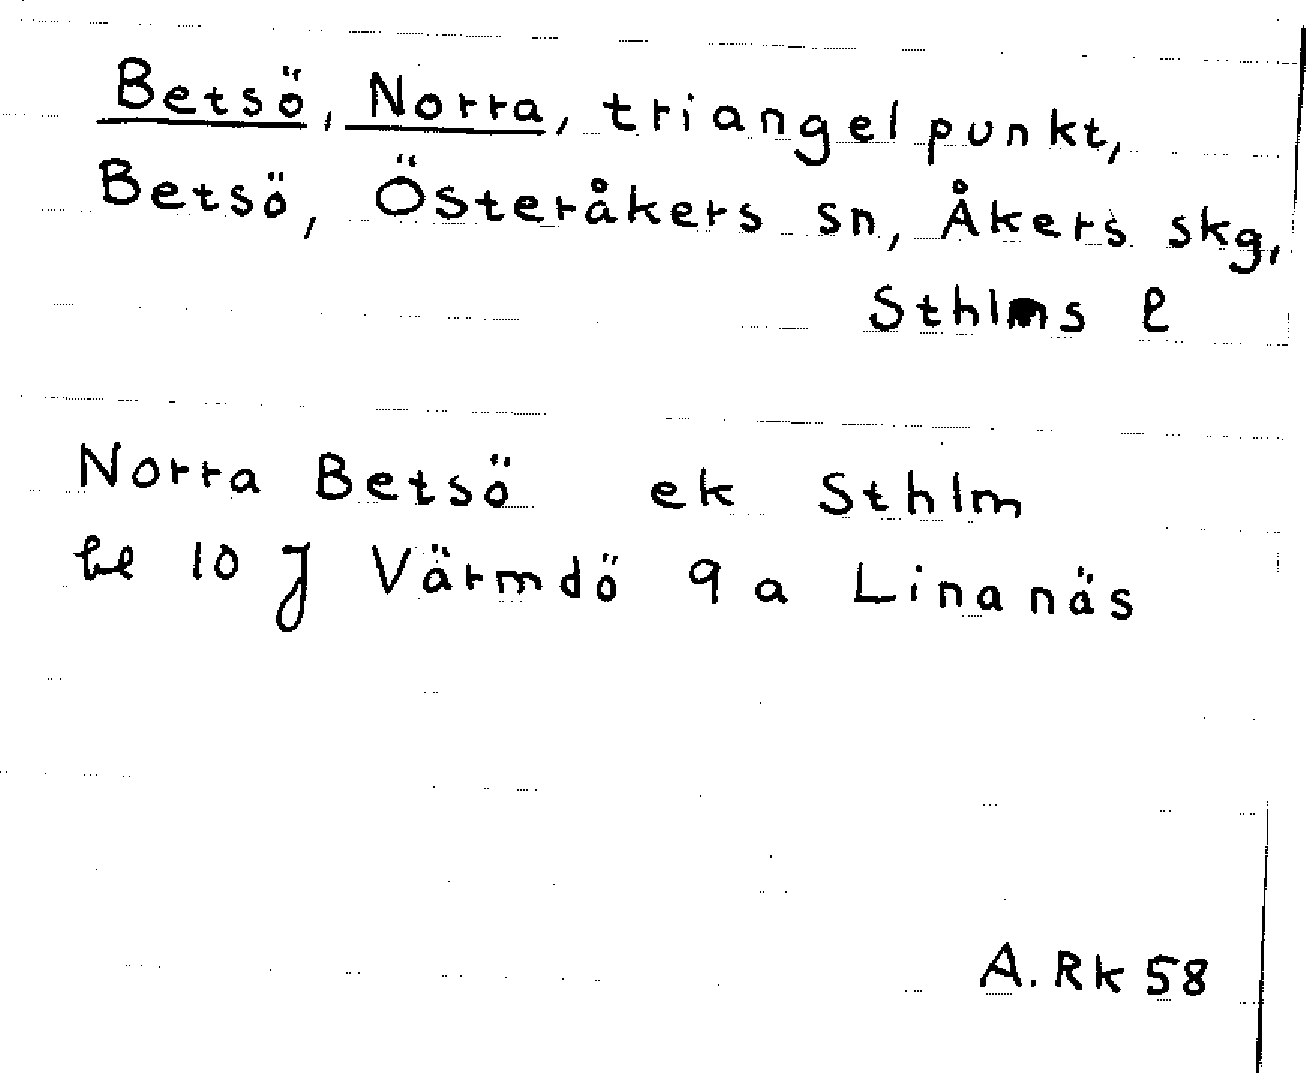 Betsö, Norra, triangelpunkt,
Betsö, Österåkers sn, Åkers skg,
Sthlms l
Norra Betsö ek Sthlm
bl 10 J Värmdö 9 a Linanäs
A. Rk 58